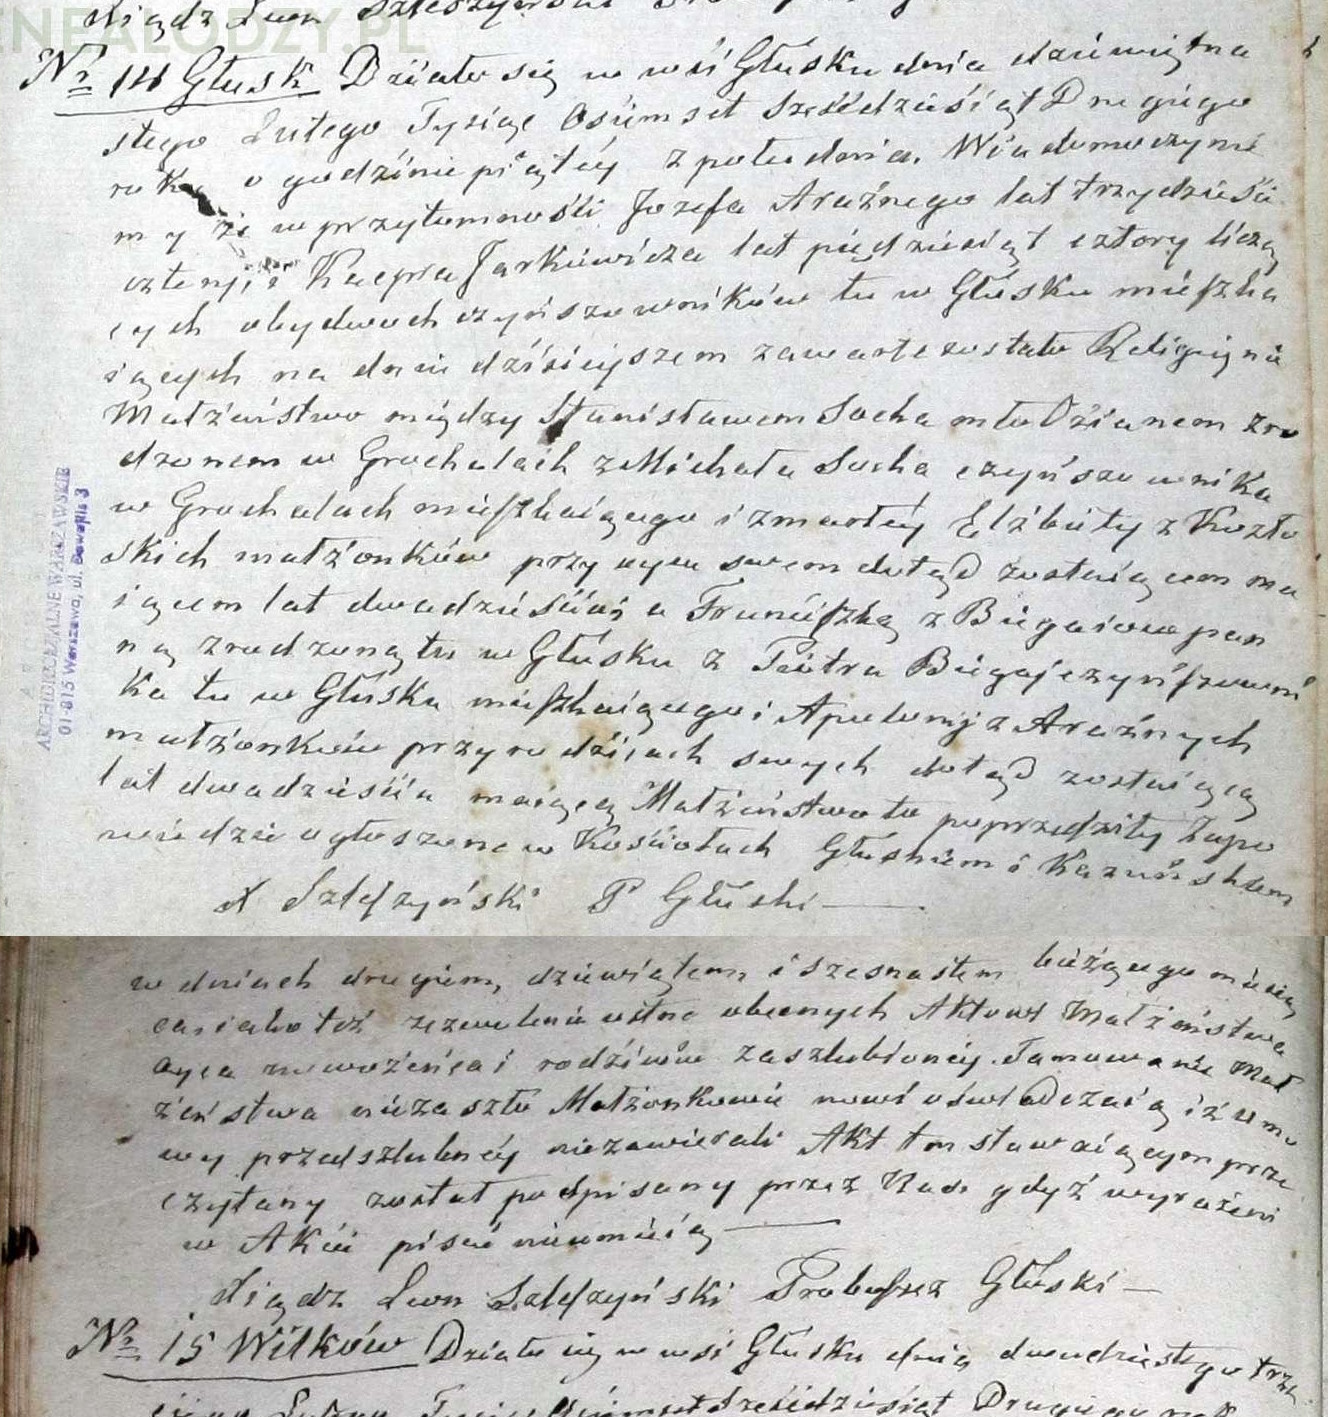 GENEALODZY.PL
Xiądz Leon Szleszyński
No 14 Głusk Działo się w wsi Głusku dnia dziewiętna
stego Lutego Tysiąc Osiemset Sześćdziesiąt Drugiego
roku o godzinie piątéy z południa. Wiadomo czynie
my że w przytomności Jozefa Araźnego lat trzydzieści
cztery, i Kacpra Jarkiewicza lat pięćdziesiąt cztery liczą
cych obydwoch czynszowników tu w Głusku mieszka
iących na dniu dzisieyszem zawarte zostało Religiyne
Małżeństwo między Stanisławem Socha młodzianem zro
dzonem w Grochalach z Michała Socha czynszownika
w Grochalach mieszkaiącego i zmarłéy Elżbiety z Kozło
skich małżonków przy oycu swem dotąd zostaiącem ma
iącem lat dwadzieścia a Franciszką z Biegaiow pan
ną zrodzoną tu w Głusku z Piotra Biegaj czynszowni
ka tu w Głusku mieszkaiącego i Apolonij z Araźnych
małżonków przy rodzicach swych dotąd zostaiącą
lat dwadzieścia maiącą Małżeństwo to poprzedziły Zapo
wiedzie ogłoszone w Kościołach Głuskiem i Kazuńskiem
X Szleszyński P Głuski
w dniach drugiem, dziewiątem, i szesnastem bieżącego miesią
ca iako też zezwolenie ustne obecnych Aktowi Małżeństwa
oyca nowożeńca i rodziców zaszlubionéy. Tamowanie Mał
żeństwa nie zaszło Małżonkowie nowi oświadczaią iż umo
wy przedszlubnéy niezawierali Akt ten stawaiącym prze
czytany został podpisany przez Nas, gdyż wyrażeni
w Akcie pisać nieumieią
Xiądz Leon Szleszyński Proboszcz Głuski
No 15 Wilków Działo się w wsi Głusku dnia dwudziestego trze
ciego Lutego Tysiąc Osiemset Sześćdziesiąt Drugiego rok
ARCHIDIECEZJALNE WARSZAWSKIE
01-815 Warszawa, ul. Dewajtis 3